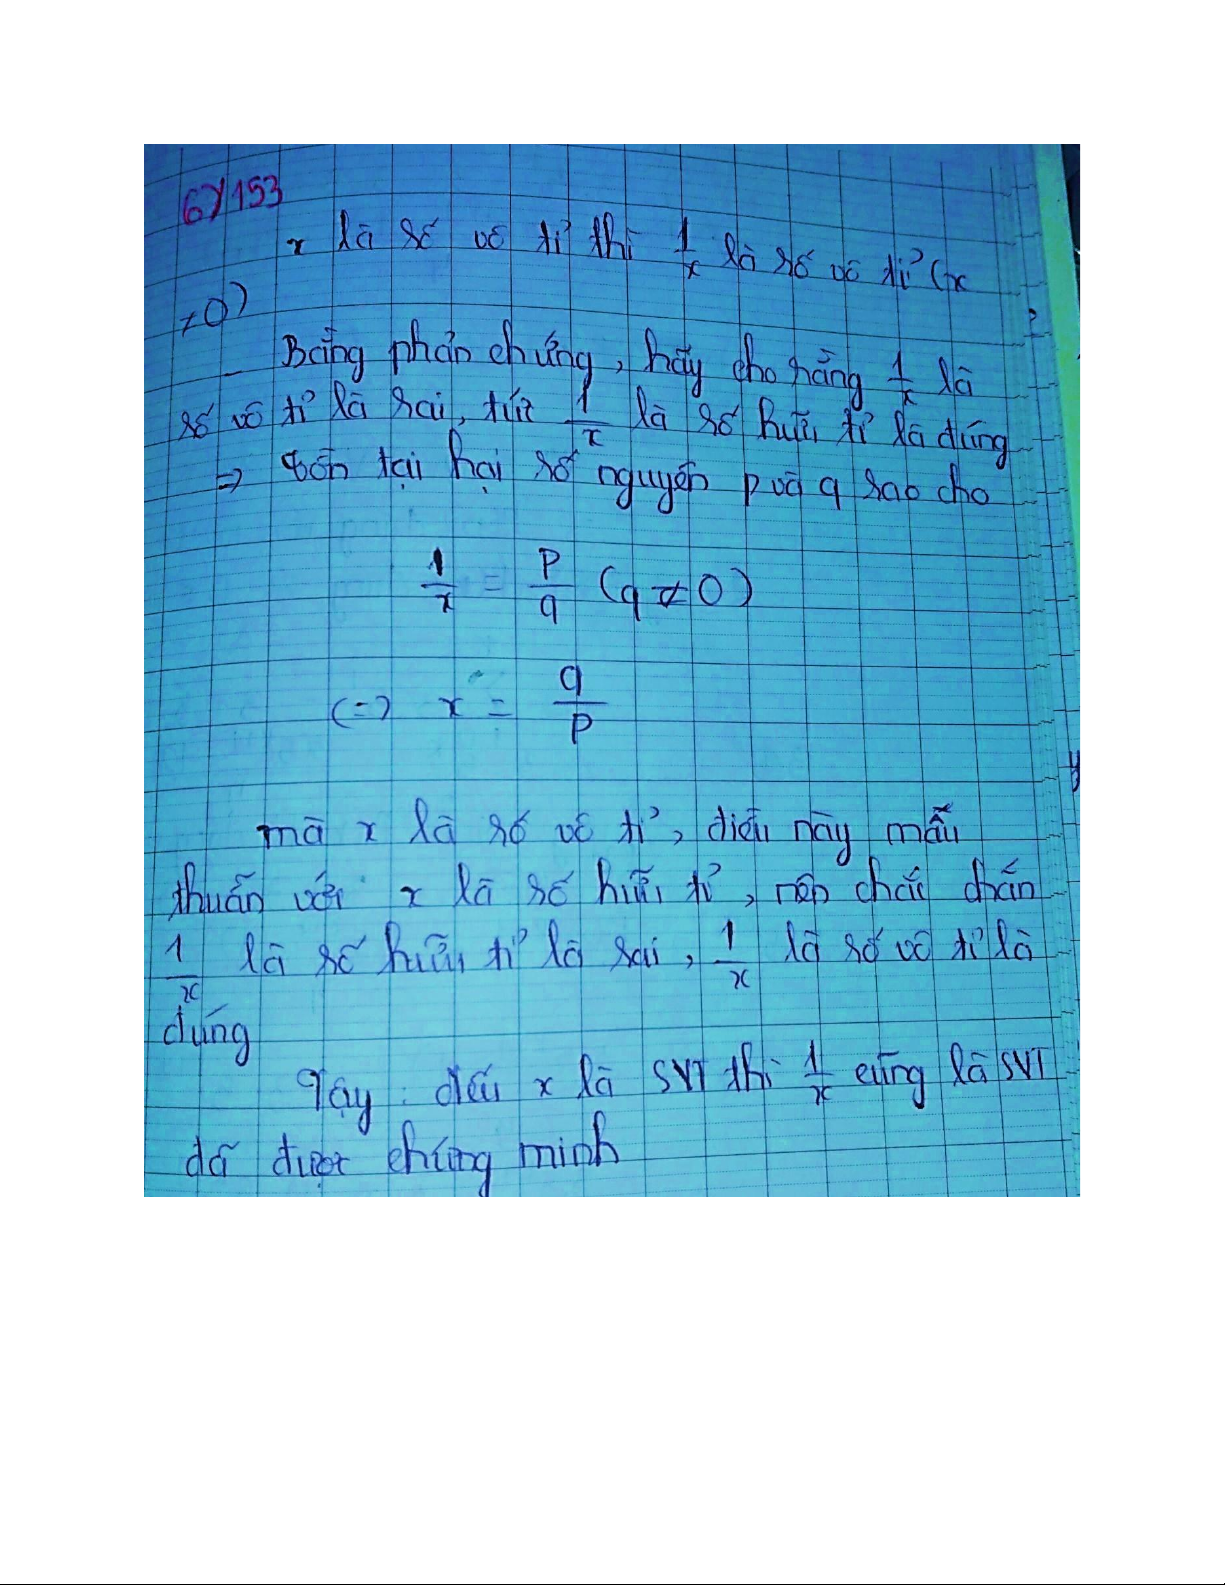 6)/153
x là số vô tỉ thì 1/x là số vô tỉ (x
≠0)
- Bằng phản chứng, hãy cho rằng 1/x là
số vô tỉ là sai, tức 1/x là số hữu tỉ là đúng
=> tồn tại hai số nguyên p và q sao cho
1/x = p/q (q ≠ 0)
(=) x = q/p
mà x là số vô tỉ, điều này mẫu
thuẫn với x là số hữu tỉ, nên chắc chắn
1/x là số hữu tỉ là sai, 1/x là số vô tỉ là
đúng
Vậy : nếu x là SVT thì 1/x cũng là SVT
đã được chứng minh